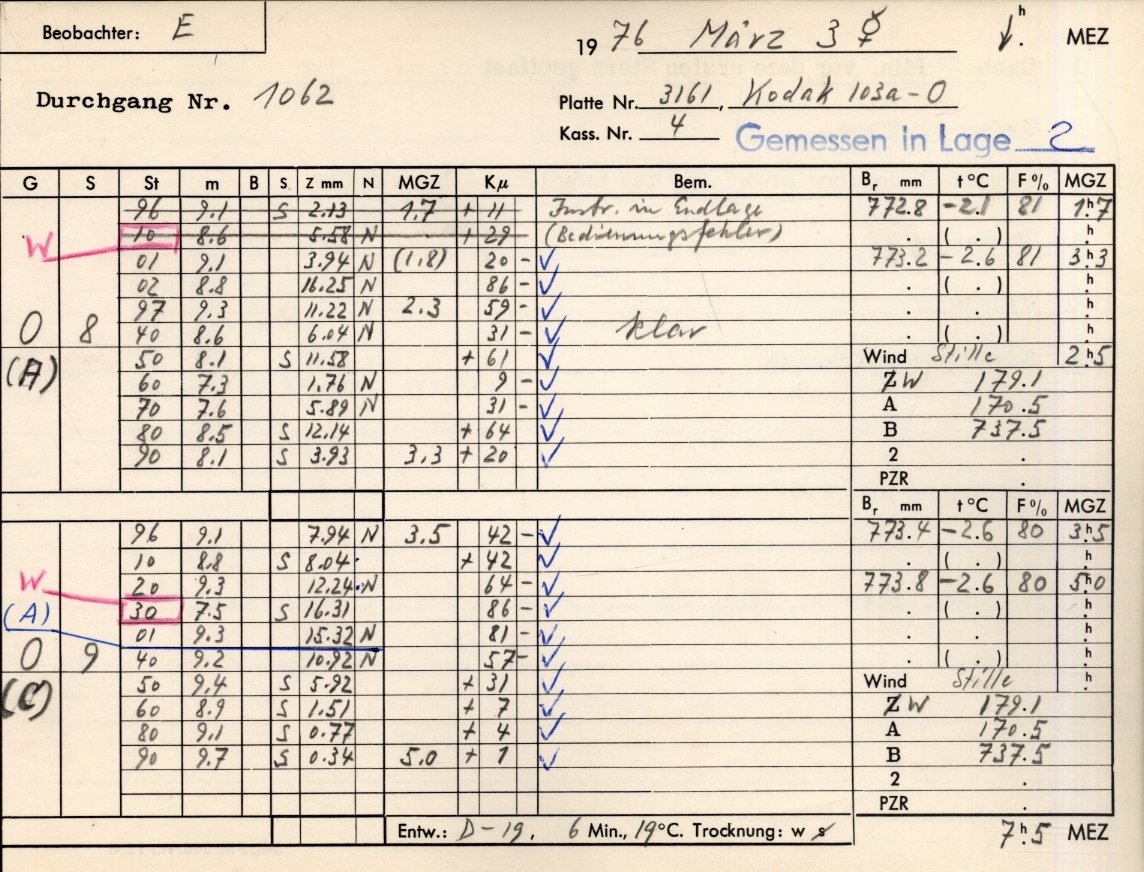 Beobachter: E
19 76 März 3 ☿ h MEZ
Durchgang Nr. 1062
Platte Nr. 3161, Kodak 103a-O
Kass. Nr. 4 Gemessen in Lage 2
G S St m B S. Z mm N MGZ Kμ Bem. Br mm t °C F % MGZ
96 9.1 S 2.13 1.7 + 11 Instr. in Endlage 772.8 -2.1 81 1h.7
W 10 8.6 5.58 N + 29 (Bedienungsfehler) . ( . ) h.
01 9.1 3.94 N (1.8) 20 - ✓ 773.2 -2.6 81 3h.3
02 8.8 16.25 N 86 - ✓ . ( . ) h.
97 9.3 11.22 N 2.3 59 - ✓ . . h.
0 8 40 8.6 6.04 N 31 - ✓ klar . ( . ) h.
(A) 50 8.1 S 11.58 + 61 ✓ Wind Stille 2h.5
60 7.3 1.76 N 9 - ✓ Z W 179.1
70 7.6 5.89 N 31 - ✓ A 170.5
80 8.5 S 12.14 + 64 ✓ B 737.5
90 8.1 S 3.93 3.3 + 20 ✓ 2 .
PZR .
Br mm t °C F % MGZ
96 9.1 7.94 N 3.5 42 - ✓ 773.4 -2.6 80 3h.5
10 8.8 S 8.04 + 42 ✓ . ( . ) h.
W 20 9.3 12.24 N 64 - ✓ 773.8 -2.6 80 5h.0
(A) 30 7.5 S 16.31 86 - ✓ . ( . ) h.
01 9.3 15.32 N 81 - ✓ . . h.
0 9 40 9.2 10.92 N 57 - ✓ . ( . ) h.
(C) 50 9.4 S 5.92 + 31 ✓ Wind Stille h.
60 8.9 S 1.51 + 7 ✓ Z W 179.1
80 9.1 S 0.77 + 4 ✓ A 170.5
90 9.7 S 0.34 5.0 + 1 ✓ B 737.5
2 .
PZR .
Entw.: D-19, 6 Min., 19°C. Trocknung: w s 7h.5 MEZ